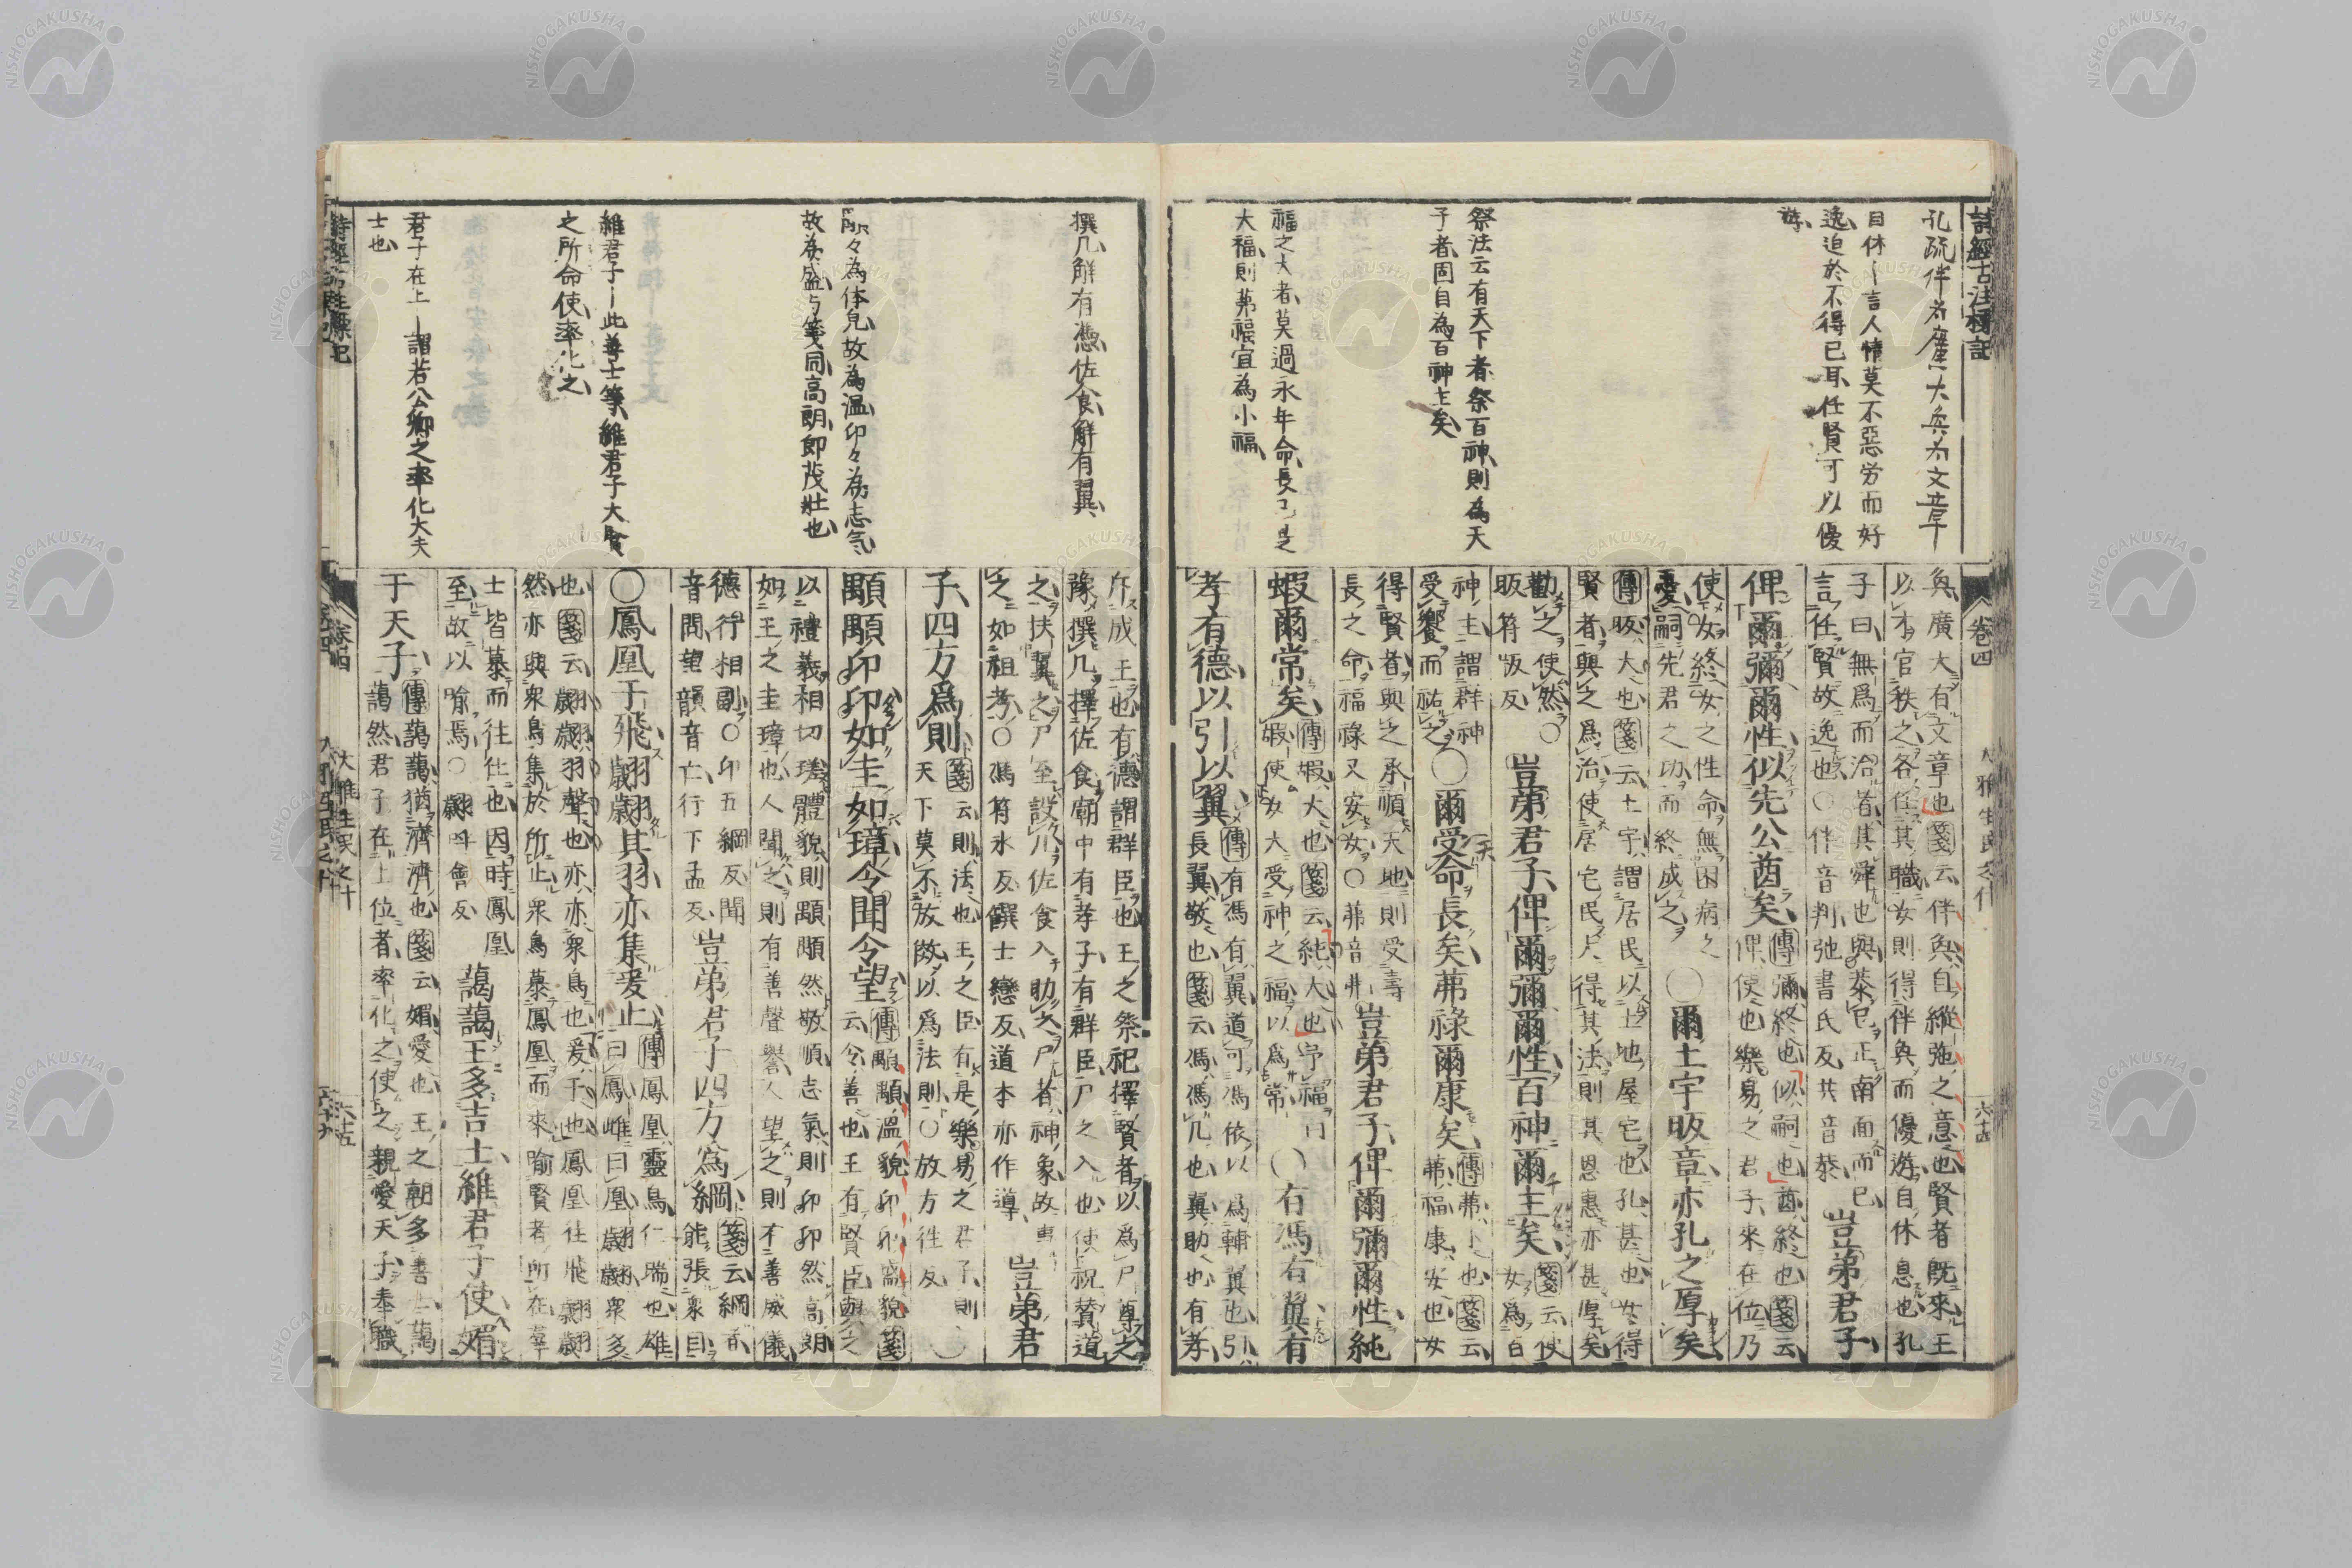 詩經古注標記
孔疏伴奐為廣大奐為文章
自休｜言人情莫不惡労而好
逸迫於不得已耳任賢可以優
游
祭法云有天下者祭百神則為天
子者固自為百神主矣
福之大者莫過永年命長已是
大福則茀祿宜為小福
卷四
大雅生民之什
六十五
奐廣大有文章也箋云伴奐自縱弛之意也賢者既來王
以才官秩之各任其職女則得伴奐而優游自休息也孔
子曰無爲而治者其舜也與恭己正南面而已
言任賢故逸也○伴音判弛書氏反共音恭
豈弟君子
俾爾彌爾性似先公酋矣
傳彌終也似嗣也酋終也箋云
俾使也樂易之君子來在位乃
使女終女之性命無困病之
憂嗣先君之功而終成之
○爾土宇昄章亦孔之厚矣
傳昄大也箋云土宇謂居民以土地屋宅也孔甚也女得
賢者與之爲治使居宅民尺得其法則其恩惠亦甚厚矣
勸之使然○
昄符版反
豈弟君子俾爾彌爾性百神爾主矣
箋云使
女為百
神主謂群神
受饗而祐之
○爾受命長矣茀祿爾康矣
傳茀小也箋云
茀福康安也女
得賢者與之承順天地則受壽
長之命福祿又安女○茀音弗
豈弟君子俾爾彌爾性純
嘏爾常矣
傳嘏大也箋云純大也予福曰
嘏使女大受神之福以爲常
○有馮有翼有
孝有德以引以翼
傳有馮有翼道可馮依以為輔翼也引
長翼敬也箋云馮馮几也翼助也有孝
撰几解有憑佐食解有翼
顒々為体皃故為温卬々為志気
故為盛与箋同高朗即茂壮也
維君子｜此善士等維君子大夫
之所命使率化之
君子在上｜謂若公卿之率化大夫
士也
斥成王也有德謂群臣也王之祭祀擇賢者以爲尸尊之
豫撰几擇佐食廟中有孝子有群臣尸之入也使祝贊道
之扶翼之尸至設几佐食入助之尸者神象故事
之如祖考○馮符氷反饌士戀反道本亦作導
豈弟君
子四方爲則
箋云則法也王之臣有是樂易之君子則
天下莫不放傚以爲法則○放方徃反
○
顒顒卬卬如圭如璋令聞令望
傳顒顒溫貌卬卬盛貌箋
云令善也王有賢臣與之
以禮義相切瑳體貌則顒顒然敬順志氣則卬卬然高朗
如王之圭璋也人聞之則有善聲譽人望之則有善威儀
德行相副○卬五綱反聞
音問望韻音亡行下孟反
豈弟君子四方爲綱
箋云綱者
能張衆目
○鳳凰于飛翽翽其羽亦集爰止
傳鳳凰靈鳥仁瑞也雄
曰鳳雌曰凰翽翽衆多
也箋云翽翽羽聲也亦亦衆鳥也爰于也鳳凰往飛翽翽
然亦與衆鳥集於所止衆鳥慕鳳凰而來喻賢者所在羣
士皆慕而往仕也因時鳳凰
至故以喻焉○翽呼會反
藹藹王多吉士維君子使媚
于天子
傳藹藹猶濟濟也箋云媚愛也王之朝多善士藹
藹然君子在上位者率化之使之親愛天子奉職
詩經古注標記
卷四
大雅生民之什